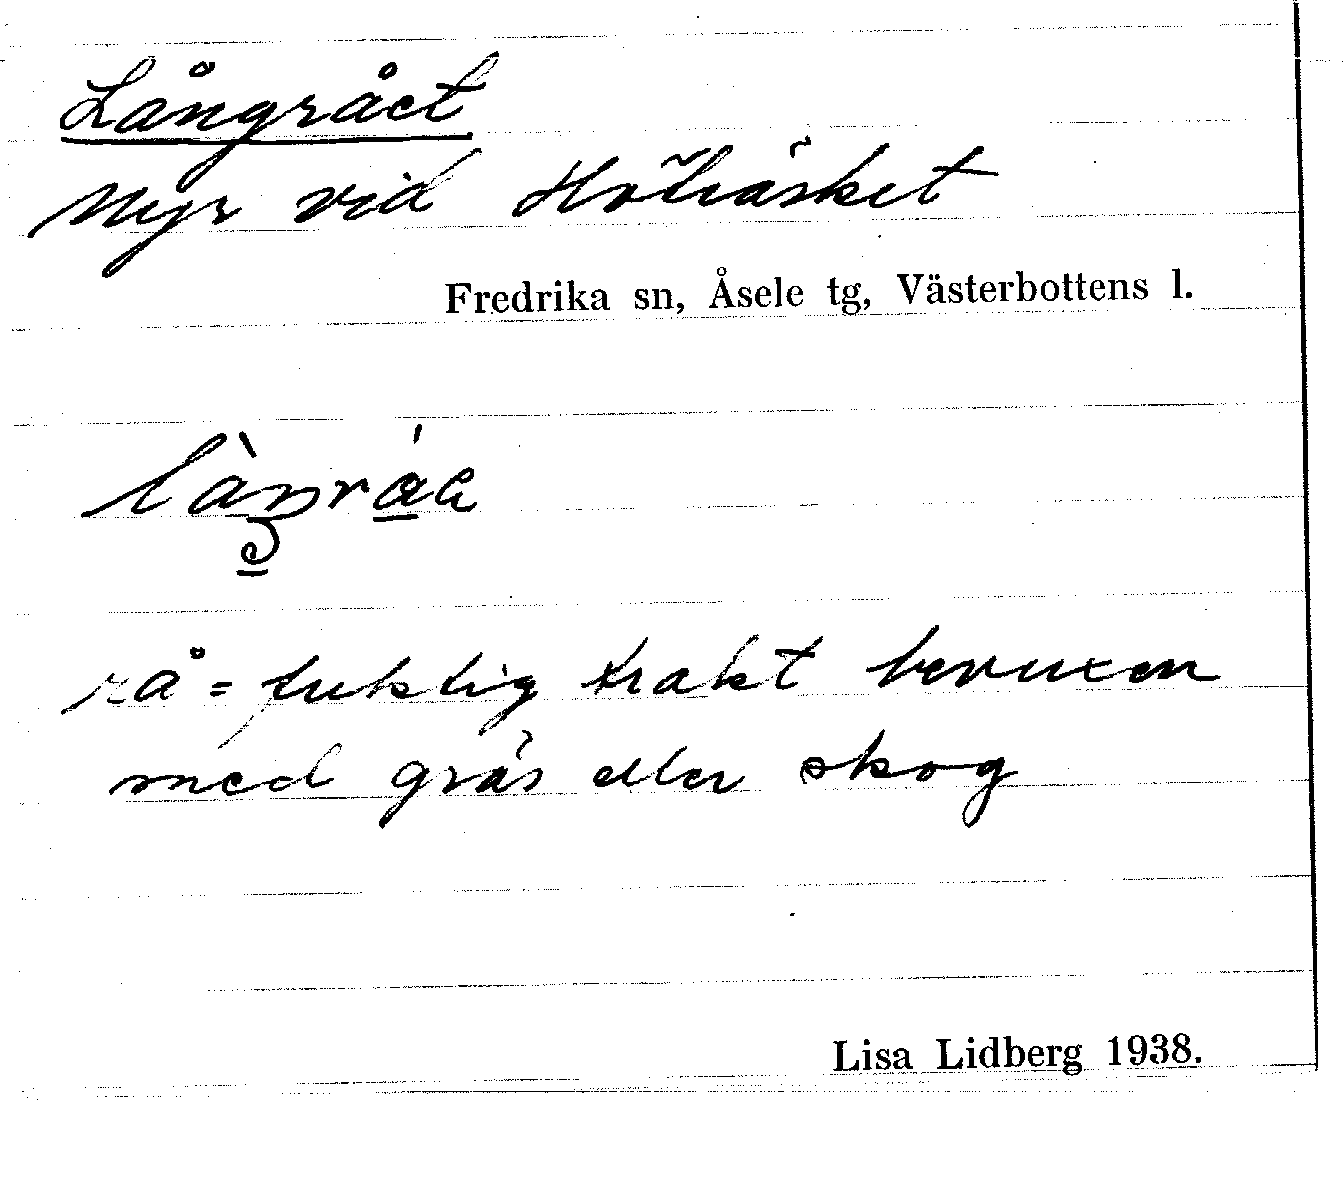 Långrået
Myr vid Hölträsket
Fredrika sn, Åsele tg, Västerbottens l.
rå = fuktig trakt bevuxen
med gräs eller skog
Lisa Lidberg 1938.